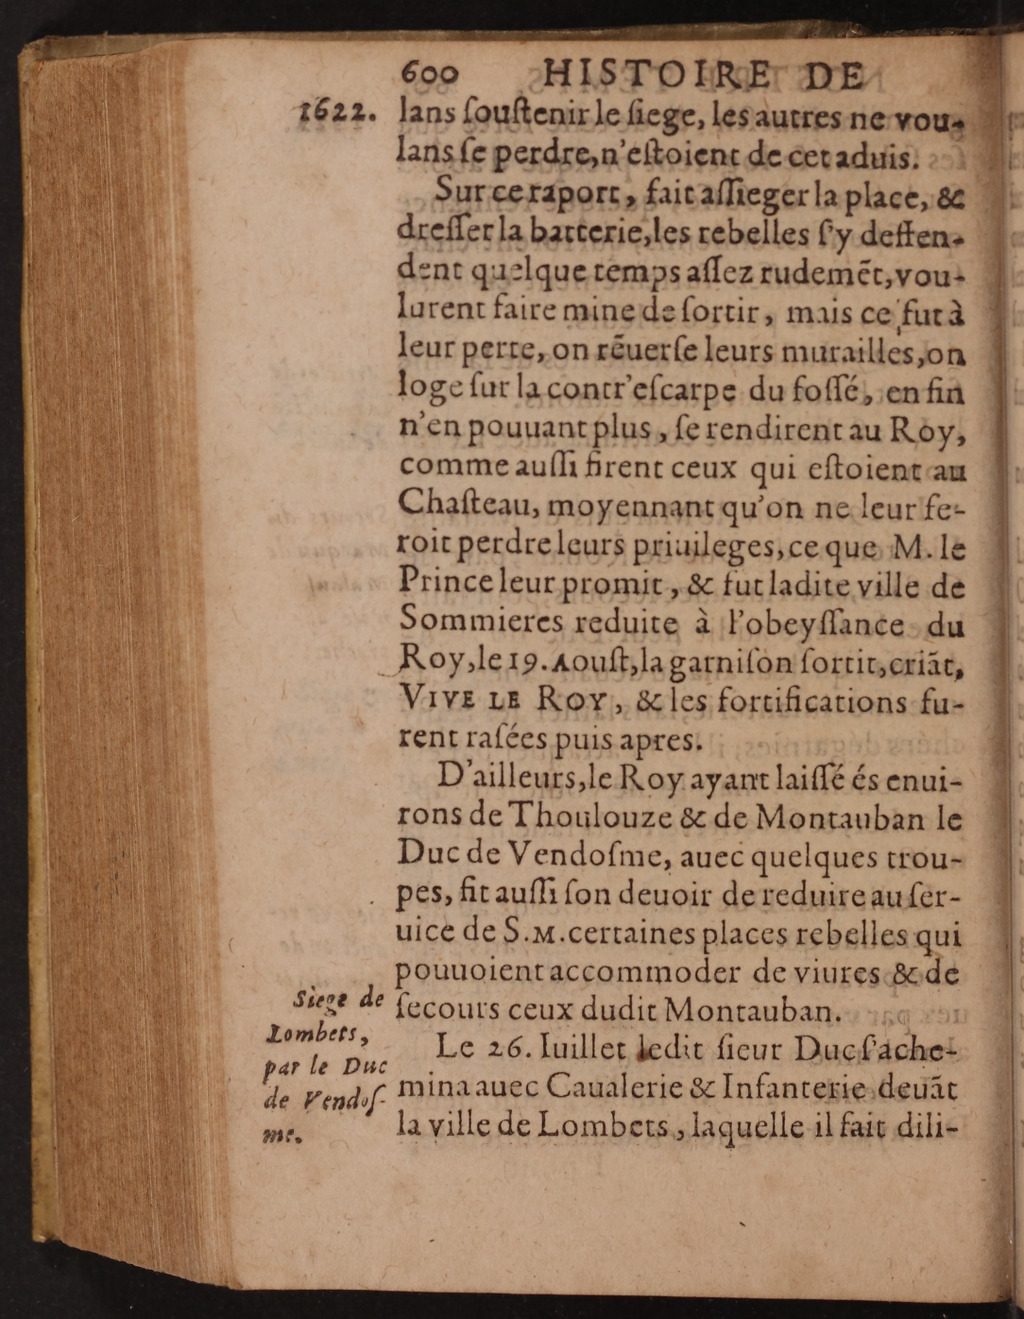 600 HISTOIRE DE
1622. lans ſouſtenir le ſiege, les autres ne vou-
lans ſe perdre, n'eſtoient de cet aduis.
Sur ce raport, fait aſſieger la place, &
dreſſer la batterie, les rebelles ſ'y deffen-
dent quelque temps aſſez rudemēt, vou-
lurent faire mine de ſortir, mais ce fut à
leur perte, on rēuerſe leurs murailles, on
loge ſur la contr'eſcarpe du foſſé, en fin
n'en pouuant plus, ſe rendirent au Roy,
comme auſſi firent ceux qui eſtoient au
Chaſteau, moyennant qu'on ne leur fe-
roit perdre leurs priuileges, ce que M. le
Prince leur promit, & fut ladite ville de
Sommieres reduite à l'obeyſſance du
Roy, le 19. Aouſt, la garniſon ſortit, criāt,
VIVE LE ROY, & les fortifications fu-
rent raſées puis apres.
D'ailleurs, le Roy ayant laiſſé és enui-
rons de Thoulouze & de Montauban le
Duc de Vendoſme, auec quelques trou-
pes, fit auſſi ſon deuoir de reduire au ſer-
uice de S.M. certaines places rebelles qui
pouuoient accommoder de viures & de
ſecours ceux dudit Montauban.
Le 26. Iuillet ledit ſieur Duc ſ'ache-
mina auec Caualerie & Infanterie deuāt
la ville de Lombets, laquelle il fait dili-
Siege de
Lombets,
par le Duc
de Vendoſ-
me.